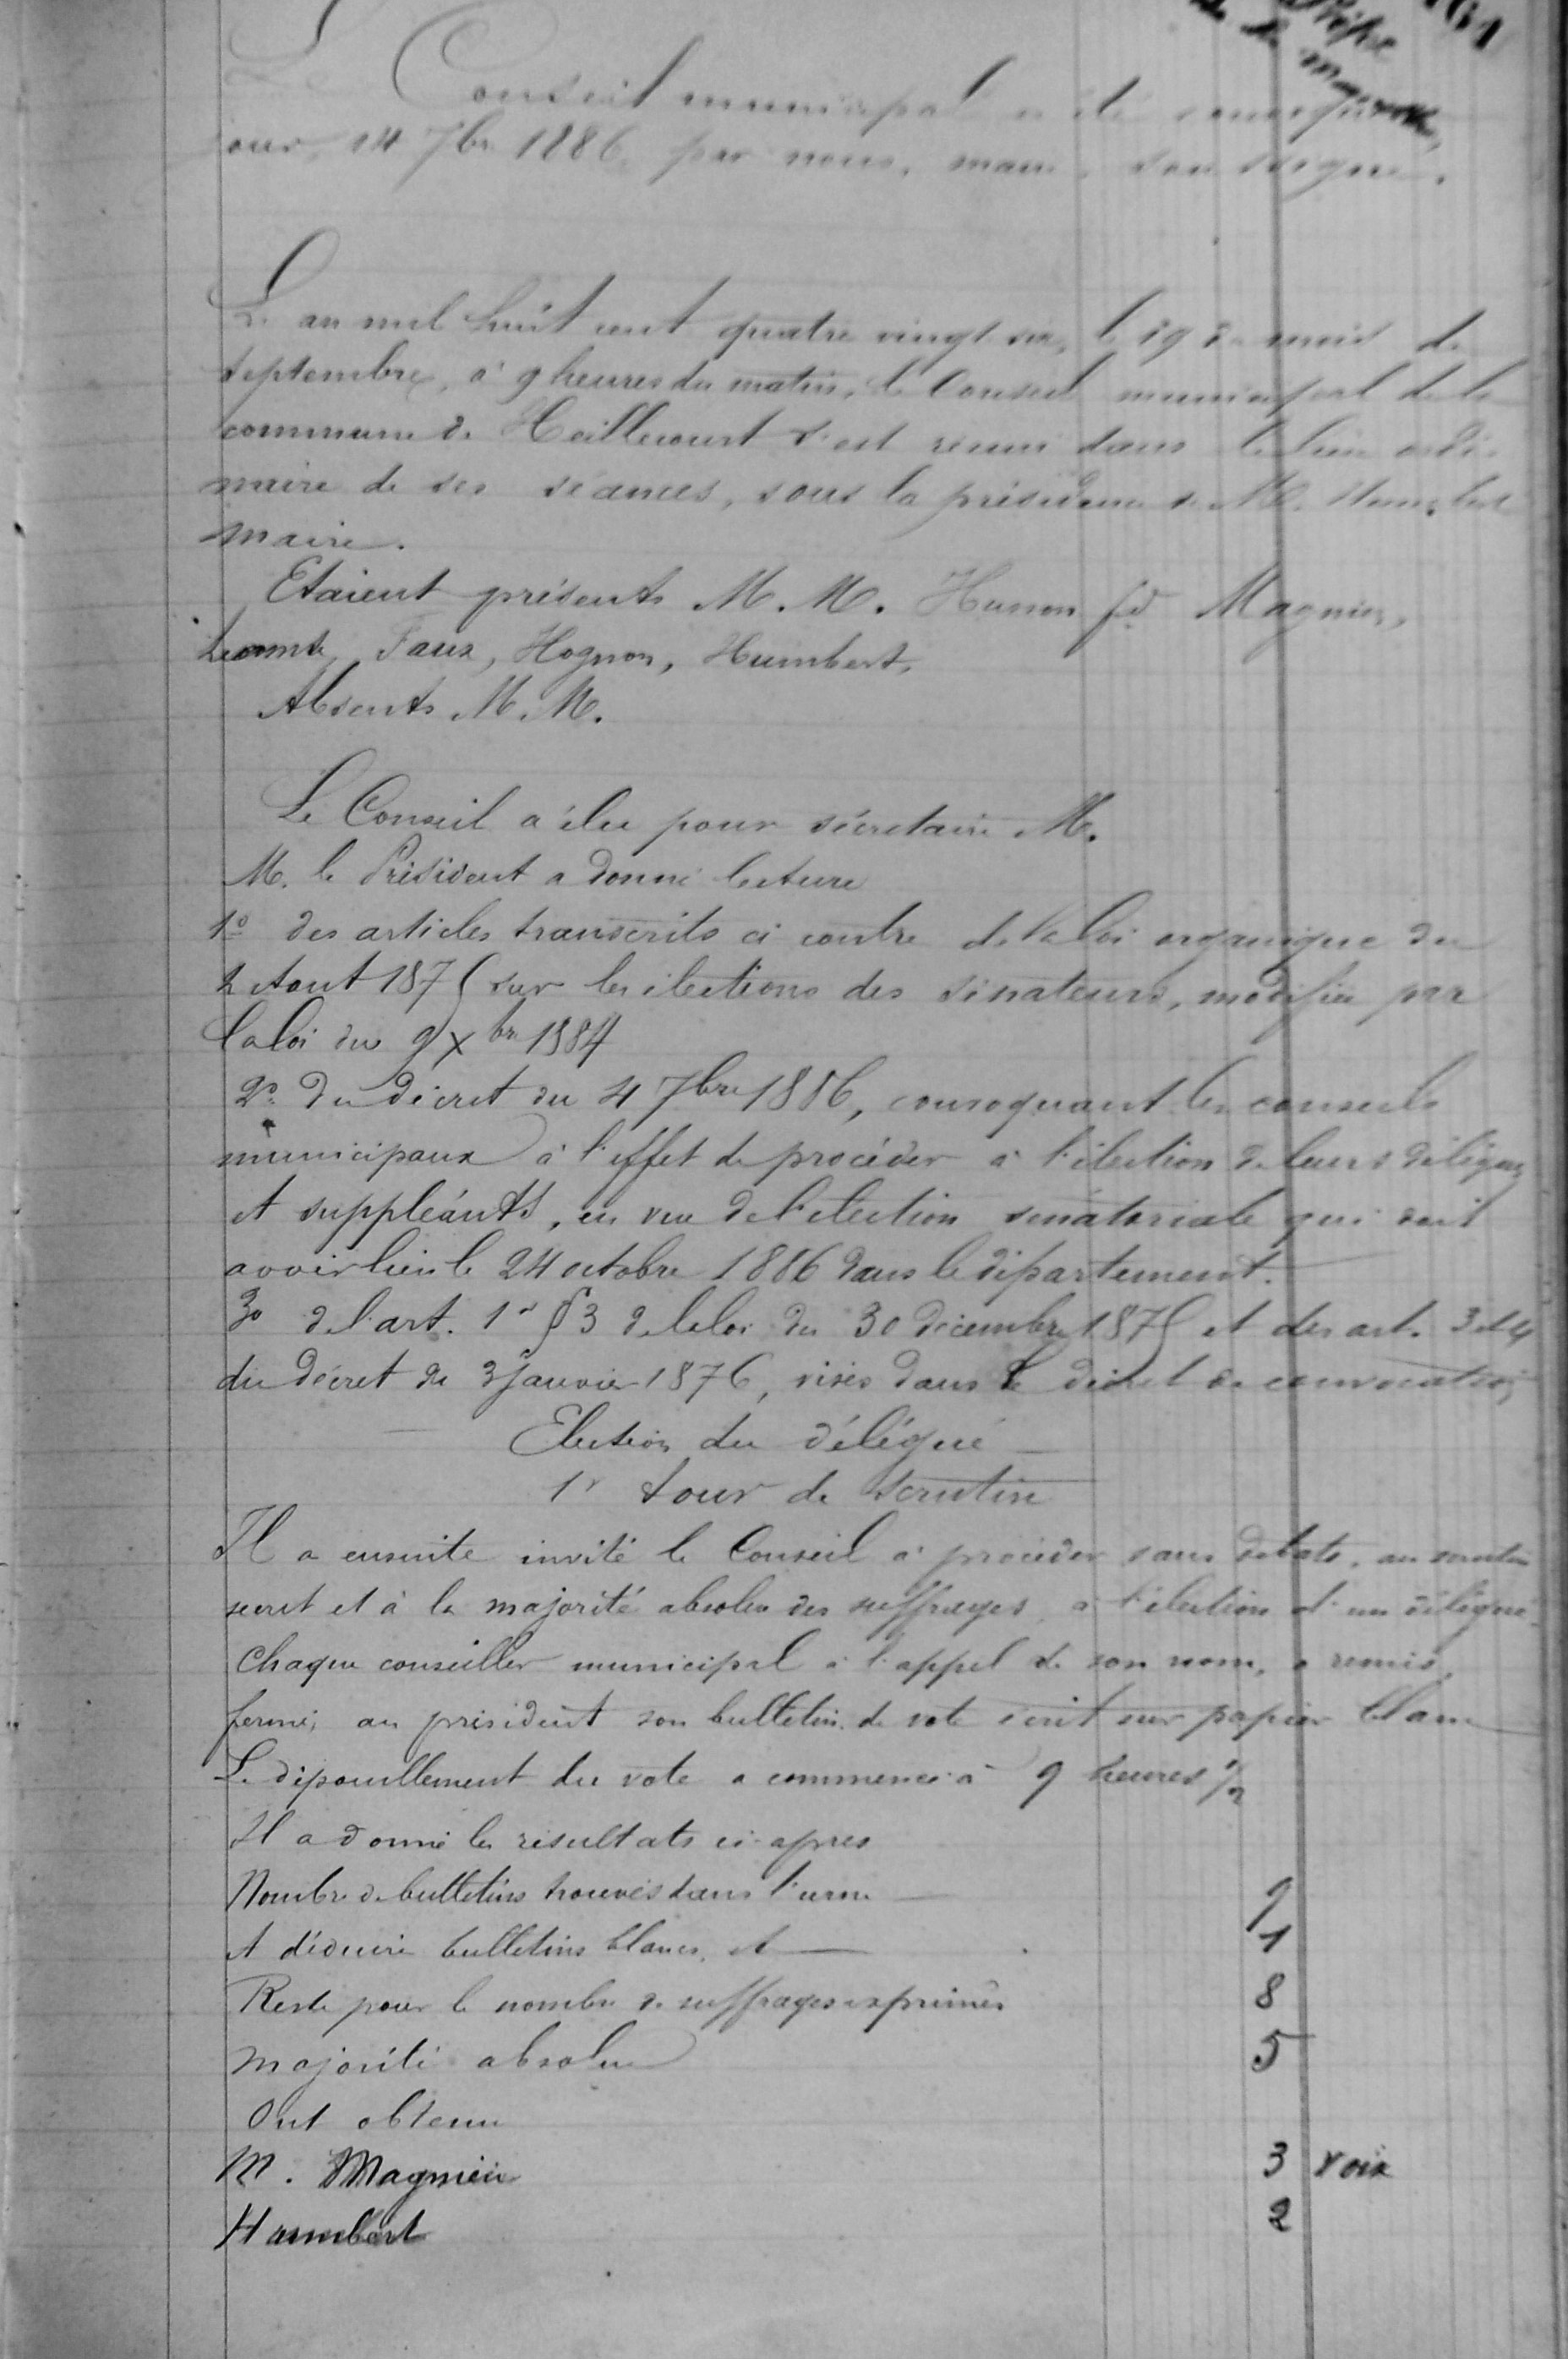 161
Le Conseil municipal a été
jour, 14 7bre 1886, par nous, maire, soussigné.
L'an mil huit cent quatre vingt six, le 19 du mois de
septembre, à 9 heures du matin, le Conseil municipal de la
commune de Heillecourt s'est réuni dans le lieu ordi
naire de ses séances, sous la présidence de M. Humbert
maire.
Etaient présents M. M. Husson fd Magnien,
Lecomte, Faux, Hognon, Humbert,
Absents M. M.
Le Conseil a élu pour sécretaire M.
M. le Président a donné lecture
1º des articles transcrits ci contre de la loi organique du
2 Aout 1875 sur les élections des sénateurs, modifiée par
la loi du 9 Xbre 1884
2º Du décret du 4 7bre 1886, convoquant les conseils
municipaux à l'effet de procéder à l'élection de leurs délégués
et suppléants, en vue de l'élection sénatoriale qui doit
avoir lieu le 24 octobre 1886 dans le département.
3º de l'art. 1er § 3 de la loi du 30 décembre 1875 et des art. 3 et 4
du décret du 3 janvier 1876, visés dans le décret de convocation
Election du délégué
1r tour de scrutin
Il a ensuite invité le Conseil à procéder sans débats, au scrutin
secret et à la majorité absolue des suffrages, à l'élection d'un délégué.
Chaque conseiller municipal à l'appel de son nom, a remis,
fermé, au président son bulletin de vote écrit sur papier blanc
Le dépouillement du vote a commencé à 9 heures 1/2
Il a donné les résultats ci-apres
Nombre de bulletins trouvés dans l'urne 9
A déduire bulletins blancs, et 1
Reste pour le nombre de suffrages exprimés 8
Majorité absolue 5
Ont obtenu
M. Magnien 3 voix
Humbert 2